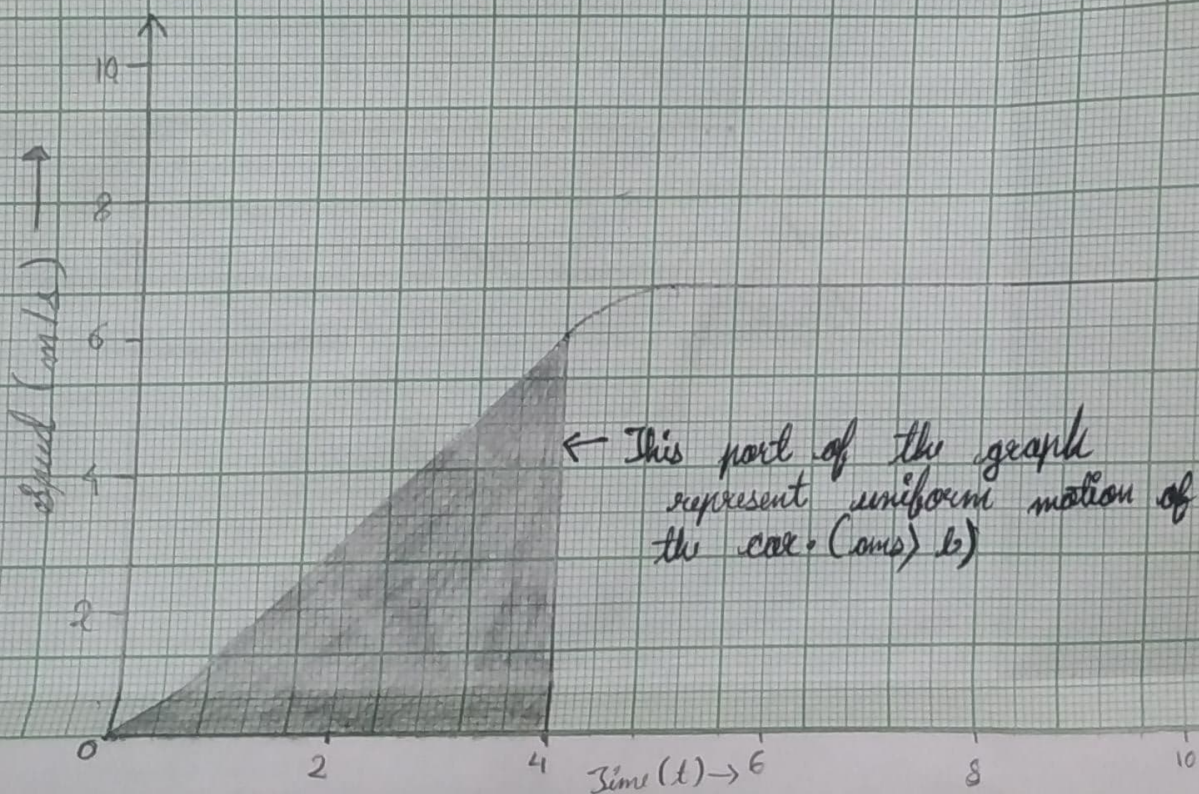 10
8
6
4
2
0
Speed (m/s)
← This part of the graph
represent uniform motion of
the car. (ans) b)
2 4 6 8 10
Time (t) →